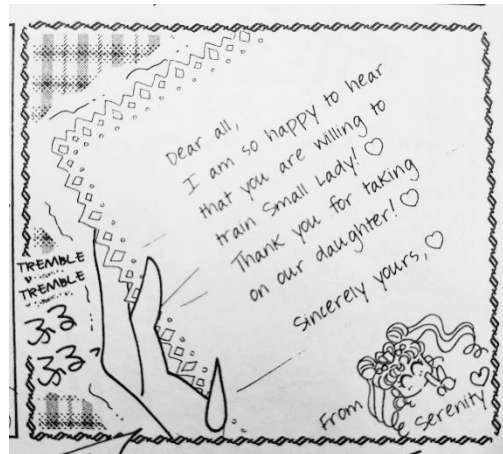 Dear all,
I am so happy to hear
that you are willing to
train Small Lady! ♡
Thank you for taking
on our daughter! ♡
Sincerely yours, ♡
From Serenity ♡
TREMBLE
TREMBLE
ぶる
ぶる